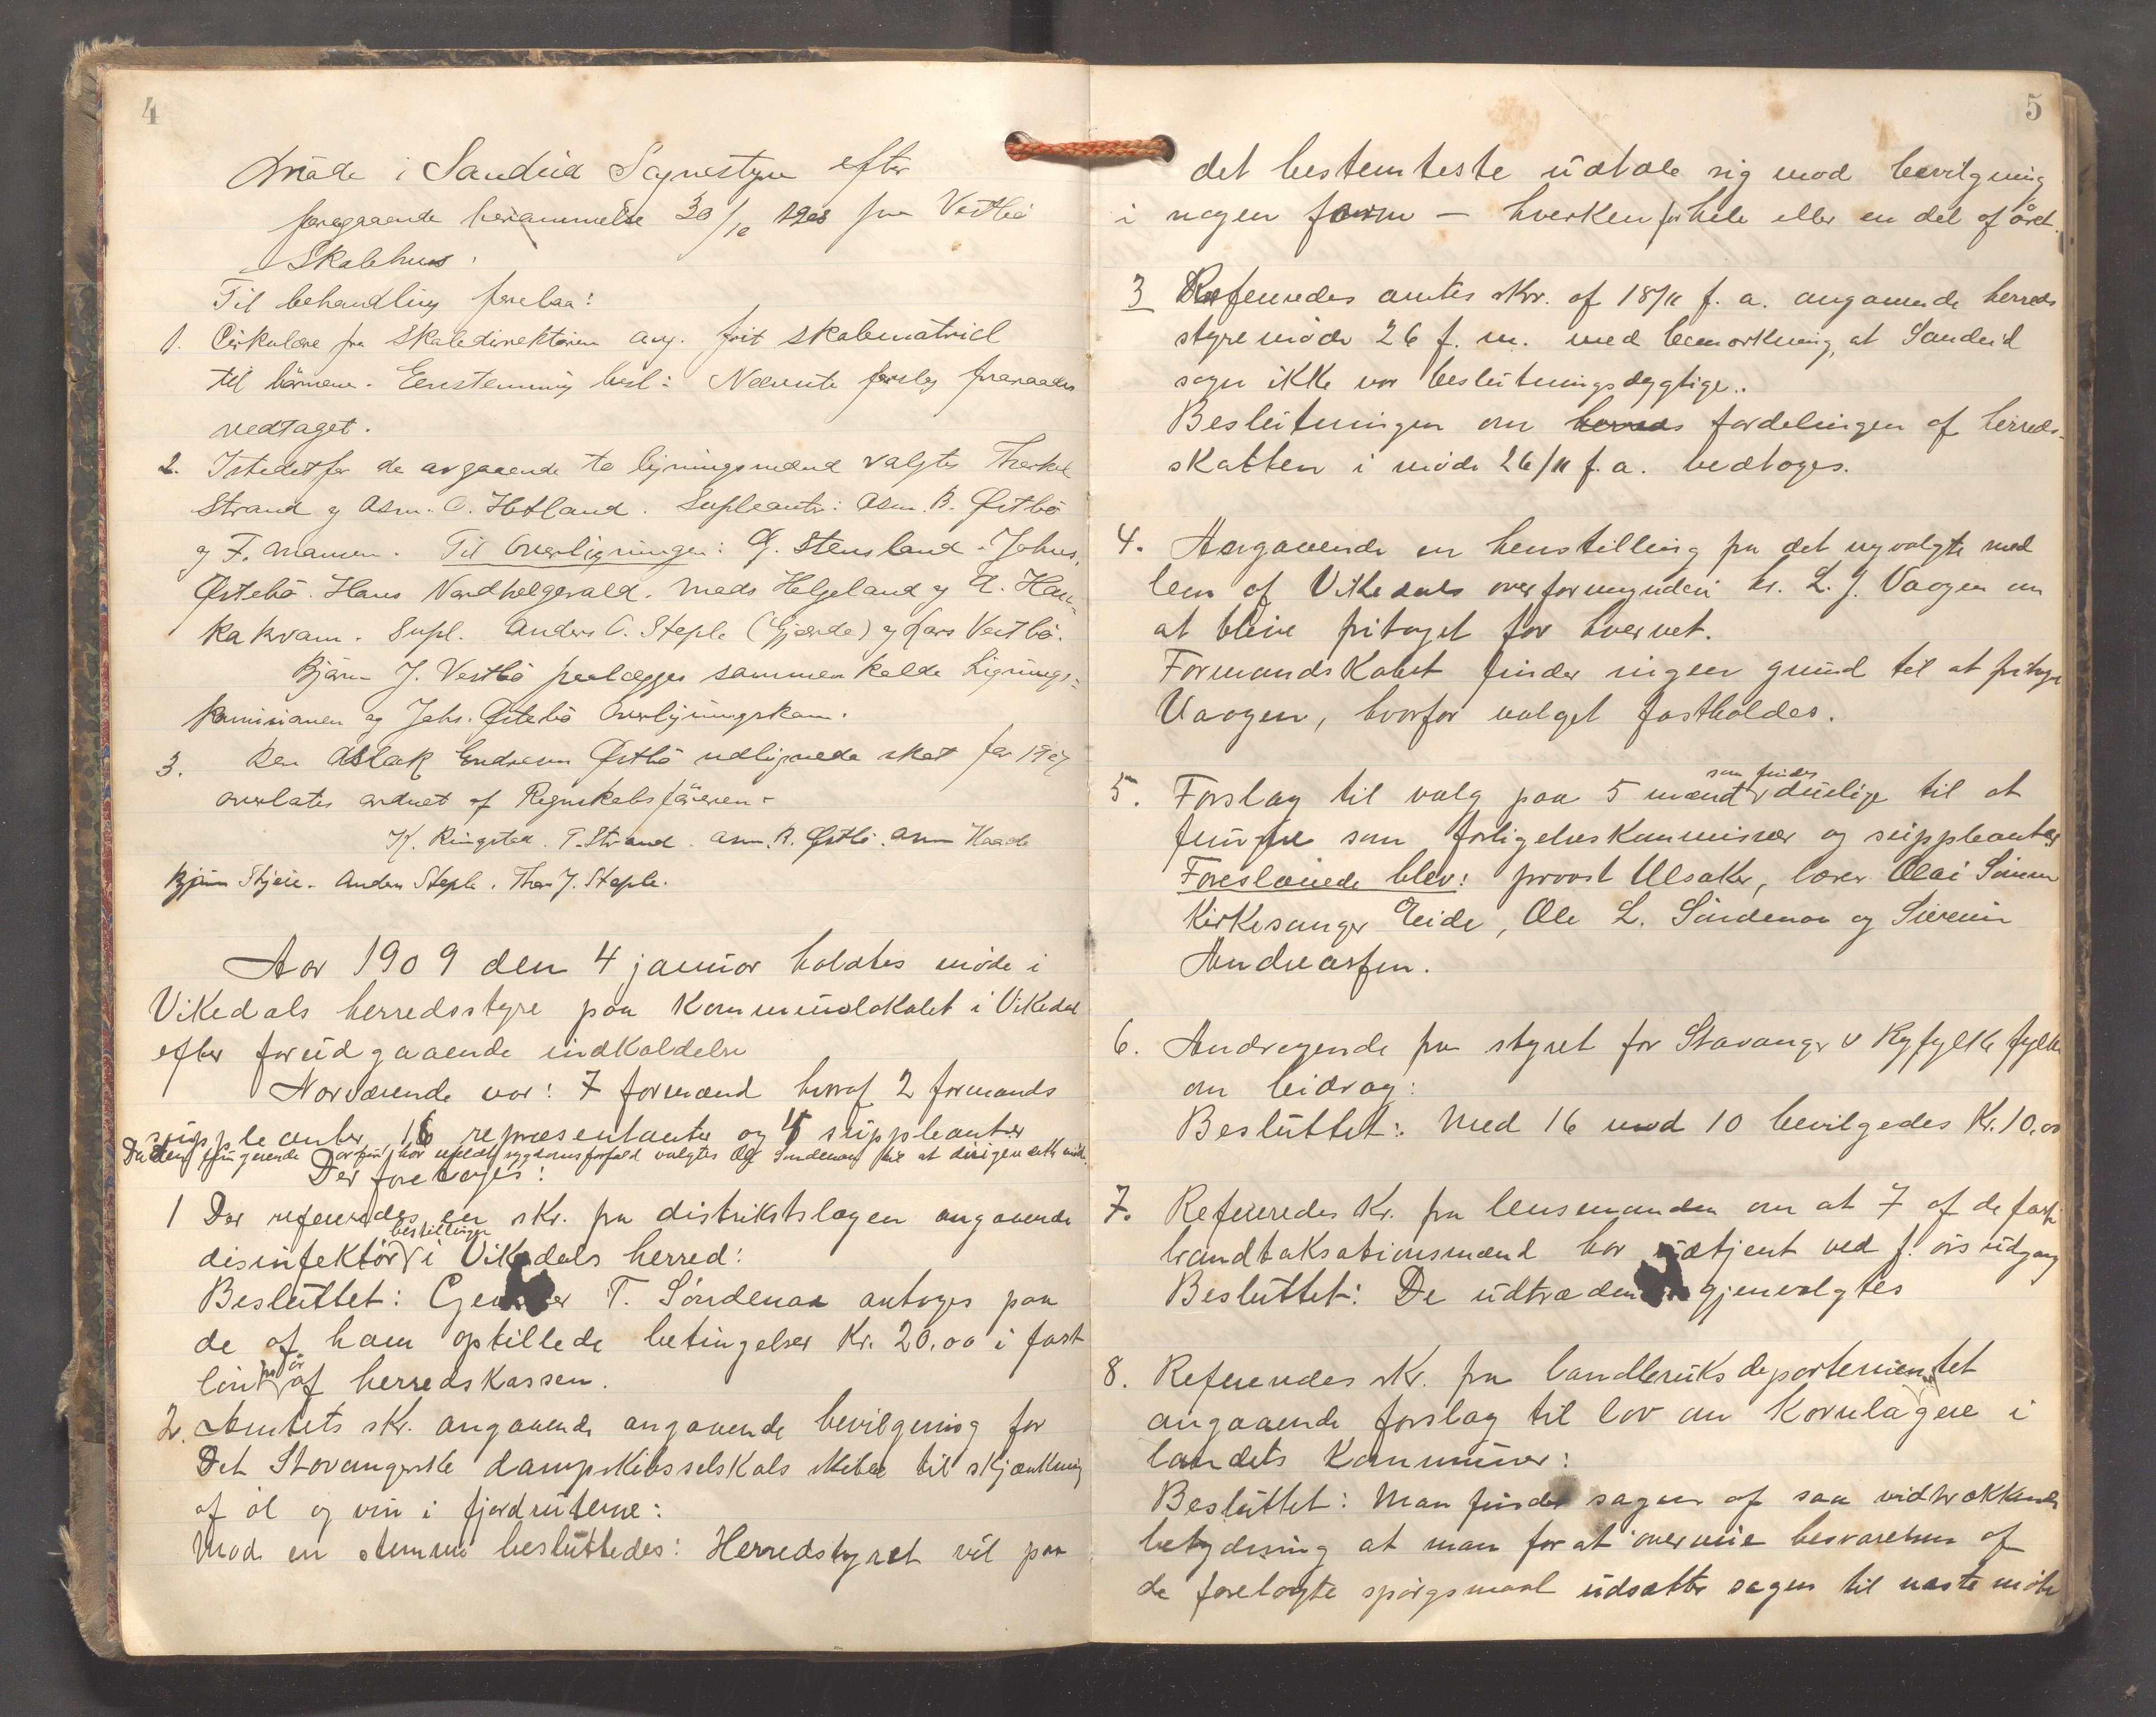 4
Møde i Sandeid Sognestyre efter
foregaaende berammelse 30/10 1908 paa Vestbø
Skolehus.
Til behandling forelaa:
1. Cirkulære fra Skoledirektøren ang. frit skolematriel
til børnene. Enstemmig besl: Nævnte forslag
vedtaget.
2. Istedetfor de avgaaende to ligningsmænd valgtes Thorkel
Strand og Asm. O. Hetland. Supleanter: Asm. B. Østbø
og F. Mannen. Til Overligningen: G. Stensland. Johns.
Østebø. Hans Nordhelgevald. Mads Helgeland og A. Hau-
kakvam. Supl. Anders O. Steple (Gjærde) og Lars Vestbø.
Bjørn J. Vestbø sammenkalde Lignings-
kommisionen og Johs. Østebø Overligningskom.
3. Den Aslak Endresen Østbø udlignede skat for 1907
overlates ordnet af Regnskabsføreren.
K. Ringstad. T. Strand. Asm. B. Østbø. Asm Haade
Bjørn Skjeie. Anders Steple. Thor J. Steple.
Aar 1909 den 4 januar holdtes møde i
Vikedals herredsstyre paa Kommunelokalet i Vikedal
efter forudgaaende indkaldelse
Nærværende var: 7 formænd hvoraf 2 formands
suppleanter, 16 repræsentanter og 4 suppleanter
Da den fungerende ordfører har meldt sygdomsforfald valgtes Ole Søndenaa til at dirigere dette møde.
Der foretoges:
1 Der refereredes en skr. fra distriktslægen angaaende
bestillingen
disinfektør i Vikedals herred:
Besluttet: T. Søndenaa antoges paa
de af ham opstillede betingelser Kr. 20.00 i fast
løn pr år af herredskassen.
2. Amtets skr. angaaende angaaende bevilgning for
Det Stavangerske dampskibsselskabs skibe til skjænkning
af øl og vin i fjordruterne:
Mod en stemme besluttedes: Herredstyret vil paa
5
det bestemteste udtale sig mod bevilgning
i nogen form — hverken for hele eller en del af året.
3 Refereredes amtes skr. af 18/11 f. a. angaaende herreds
styremøde 26 f. m. med bemærkning, at Sandeid
sogn ikke var beslutningsdygtige.
Beslutningen om herreds fordelingen af herreds-
skatten i møde 26/11 f. a. vedtoges.
4. Angaaende en henstilling fra det nyvalgte med
lem af Vikedals overformynderi hr. L. J. Vaagen om
at blive fritaget for hvervet.
Formandskabet finder ingen grund til at fritage
Vaagen, hvorfor valget fastholdes.
som findes
5. Forslag til valg paa 5 mænd duelige til at
fungere som forligelseskommisær og suppleanter
Foreslaaede blev: provst Ulsaker, lærer Olai Simon
Kirkesanger Eide, Ole L. Søndenaa og Sivenin
Andreassen.
6. Andragende fra styret for Stavanger v Ryfylke fylke
om bidrag:
Besluttet: Med 16 mod 10 bevilgedes Kr. 10.00
7. Refereredes skr. fra lensmanden om at 7 af de faste
brandtaksationsmænd har udtjent ved f. års udgang
Besluttet: De udtrædende gjenvalgtes
8. Refereredes skr. fra landbruksdepartementet
angaaende forslag til lov om Kornlagere i
landets Kommuner:
Besluttet: Man finder sagen af saa vidtrækkende
betydning at man for at overveie besvarelsen af
de forelagte spørgsmaal udsætter sagen til næste møde